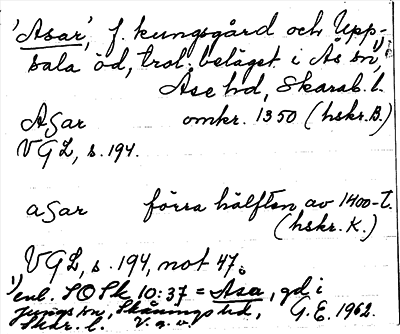 'Asar', f. kungsgård och Upp-
sala öd, trol. beläget i Ås sn, 1)
Åse hd, Skarab. l.
ASar omkr. 1350 (hskr. B.)
VGL, s. 194.
aSar förra hälften av 1400-t.
(hskr. K.)
VGL, s. 194, not 47.
1) enl. SOSk 10:37 = Asa, gd i
Jungs sn, Skånings hd,
Skar. l. V. g. v. G. E. 1962.